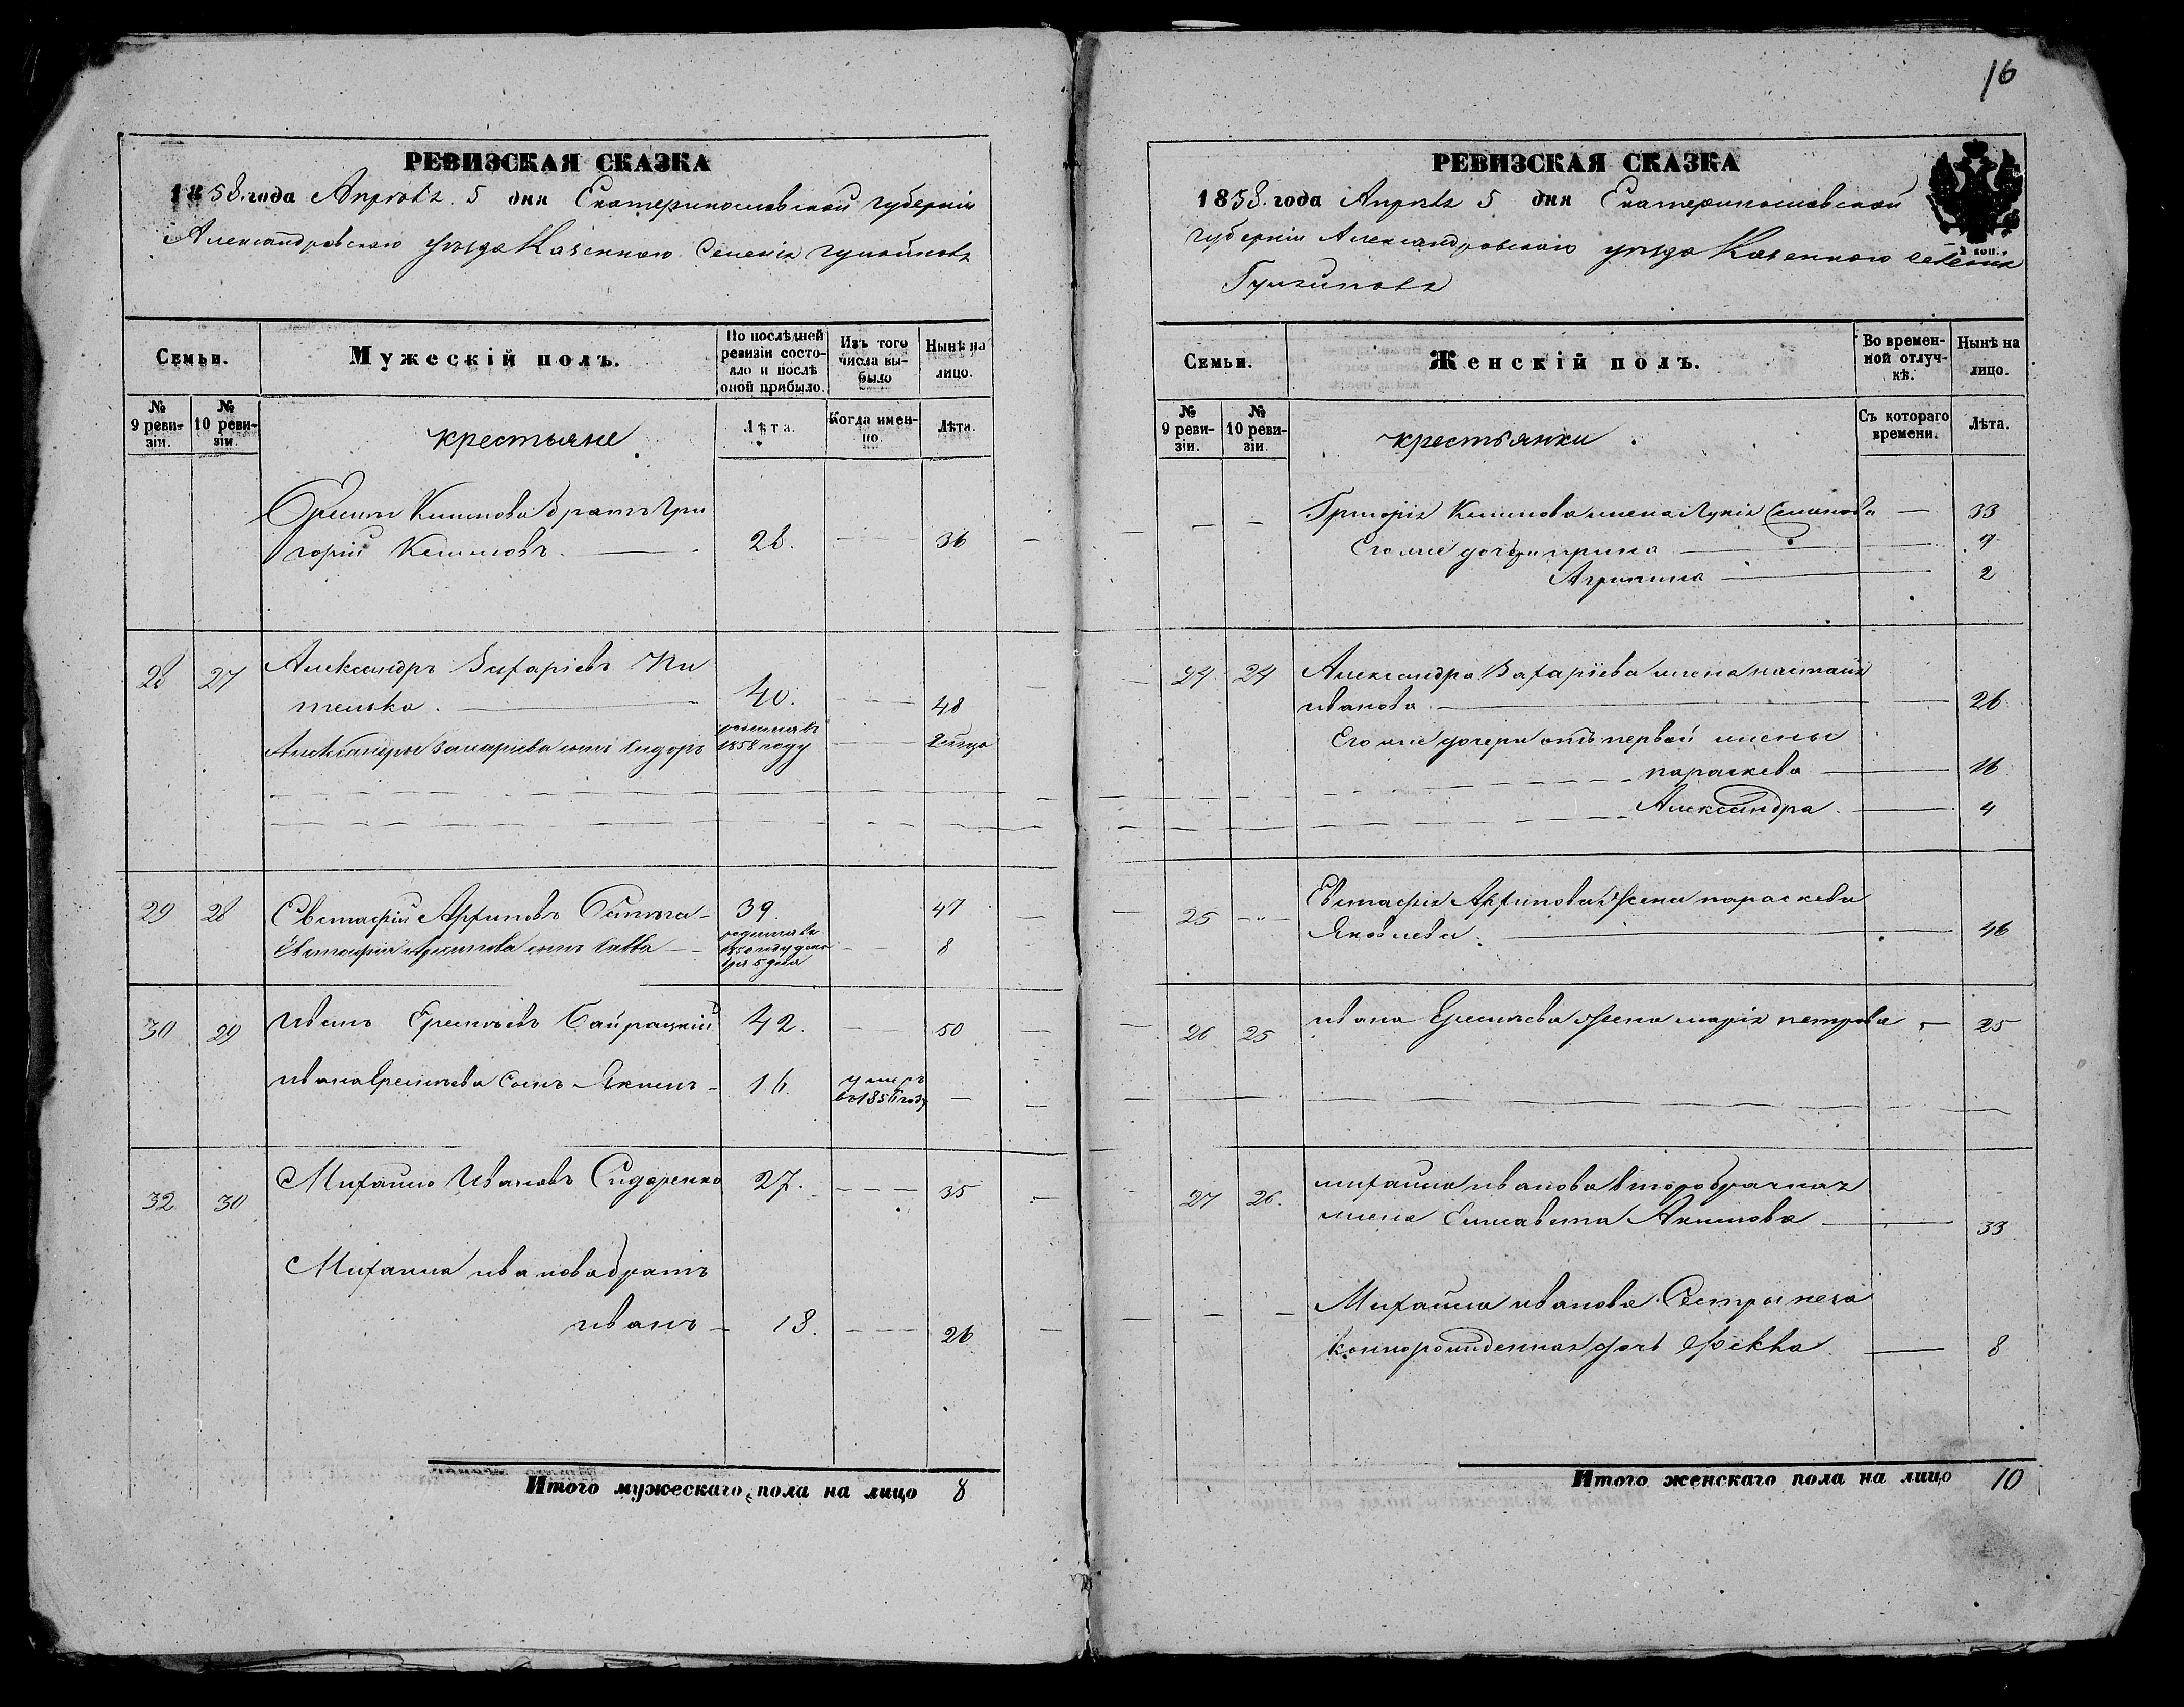 РЕВИЗСКАЯ СКАЗКА
1858 года Апреля 5 дня Екатеринославской губерніи
Александровскаго уезда Казеннаго Селенія
Семьи.
Мужескій полъ.
По послѣдней ревизіи состояло и послѣ оной прибыло.
Изъ того числа выбыло
Нынѣ на лицо.
№ 9 ревизіи.
№ 10 ревизіи.
крестьяне
Лѣта.
Когда именно.
Лѣта.
Климова братъ Гри
горій Климовъ. 28. 36
28 27 Александръ Захаріевъ
40. 48
Александра Захаріева сынъ Сидоръ родился въ 1858 году
29 28 Евстафій Архиповъ 39. 47
Евстафія Архипова сынъ Савва 8
30 29 Иванъ Еремѣевъ Байрацкій 42. 50
Ивана Еремѣева сынъ Якимъ 16. умеръ
32 30 Михайло Ивановъ Сидоренко 27. 35
Михаила Иванова братъ
Иванъ 18. 26
Итого мужескаго пола на лицо 8
16
РЕВИЗСКАЯ СКАЗКА
1858 года Апреля 5 дня Екатеринославской
губерніи Александровскаго уезда Казеннаго селенія
Семьи.
Женскій полъ.
Во временной отлучкѣ.
Нынѣ на лицо.
№ 9 ревизіи.
№ 10 ревизіи.
крестьянки
Съ котораго времени.
Лѣта.
Григорія Климова жена Лукія Семенова 33
Его же дочери ирина
Агрипина 2
24 24 Александра Захаріева жена настасія
иванова 26
Его же дочери отъ первой жены
параскева 16
Александра 4
25 Евстафія Архипова жена параскева
Яковлева. 46
26 25 ивана Еремѣева жена марія петрова 25
27 26. михайла иванова второбрачная
жена Елисавета Акимова 33
Михайла иванова Сестры неза
коннорожденная дочь Фекла 8
Итого женскаго пола на лицо 10